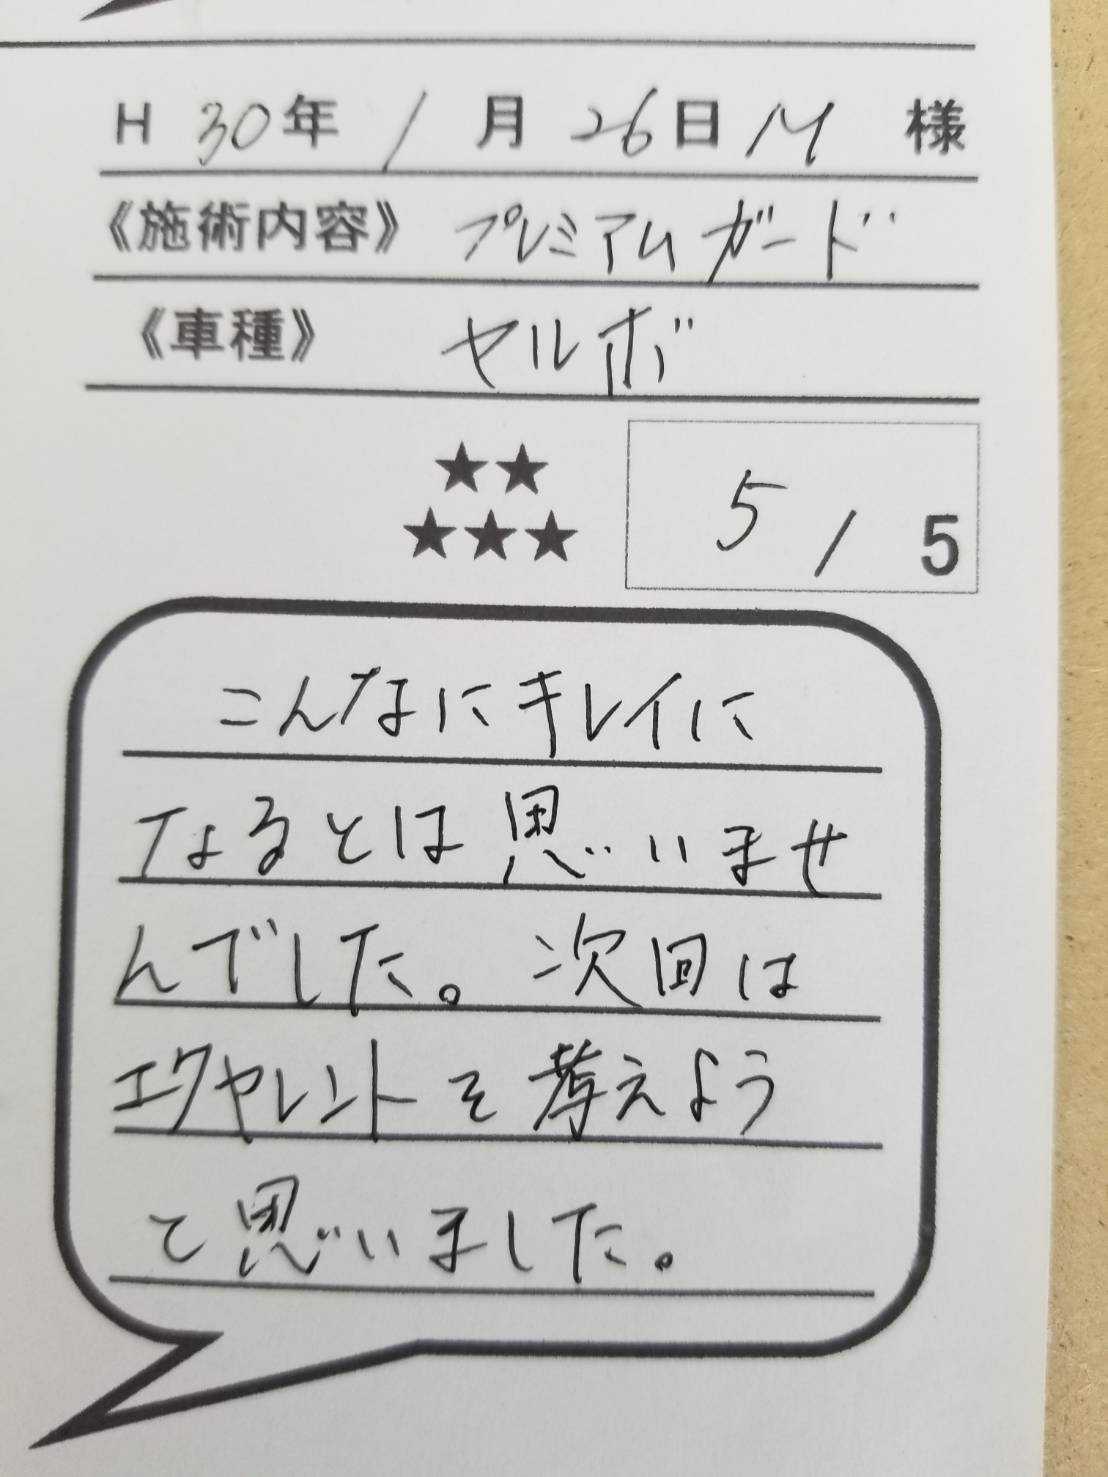 H 30年 1月 26日 M 様
《施術内容》 プレミアムガード
《車種》 セルボ
★★
★★★
5 / 5
こんなにキレイに
なるとは思いませ
んでした。次回は
エクセレントを考えよう
と思いました。